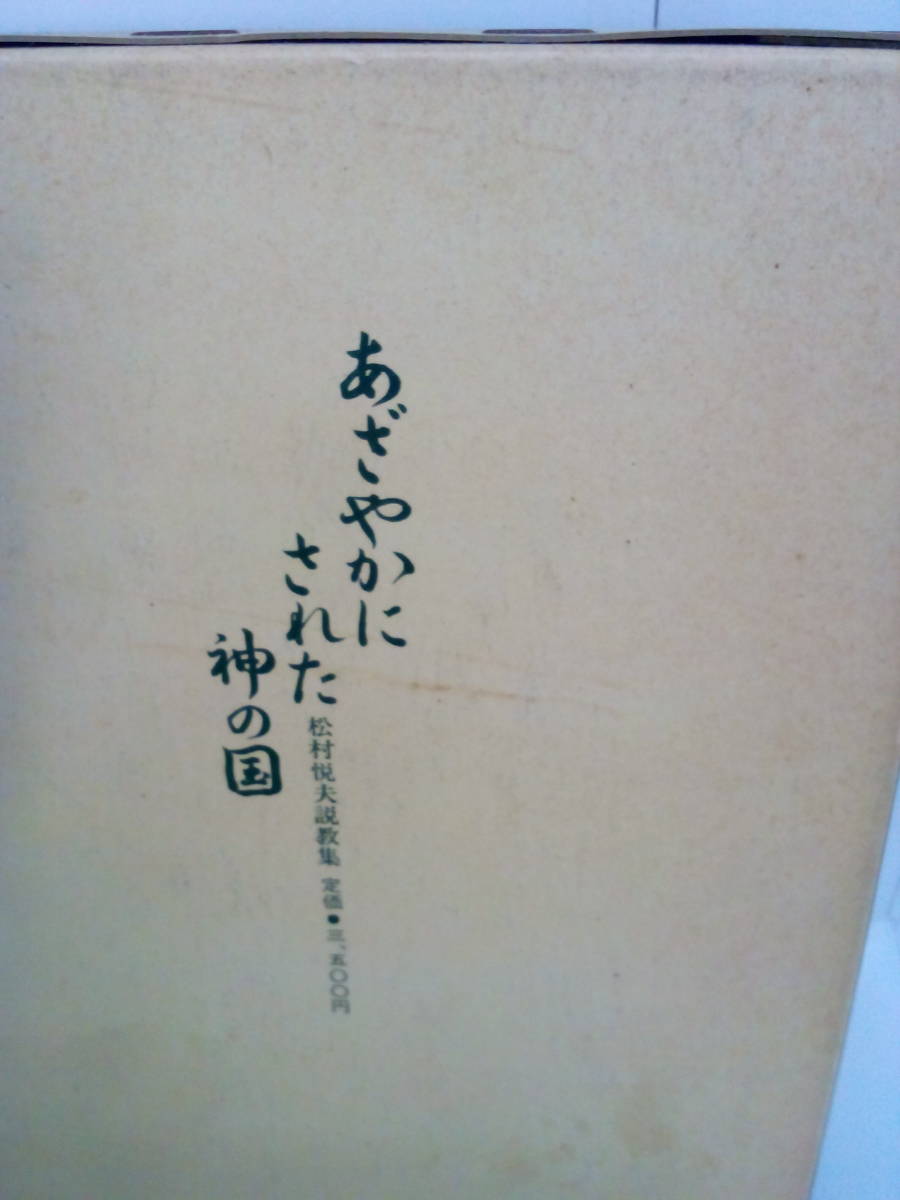 あざやかに
された
神の国
松村悦夫説教集 定価●三、五〇〇円